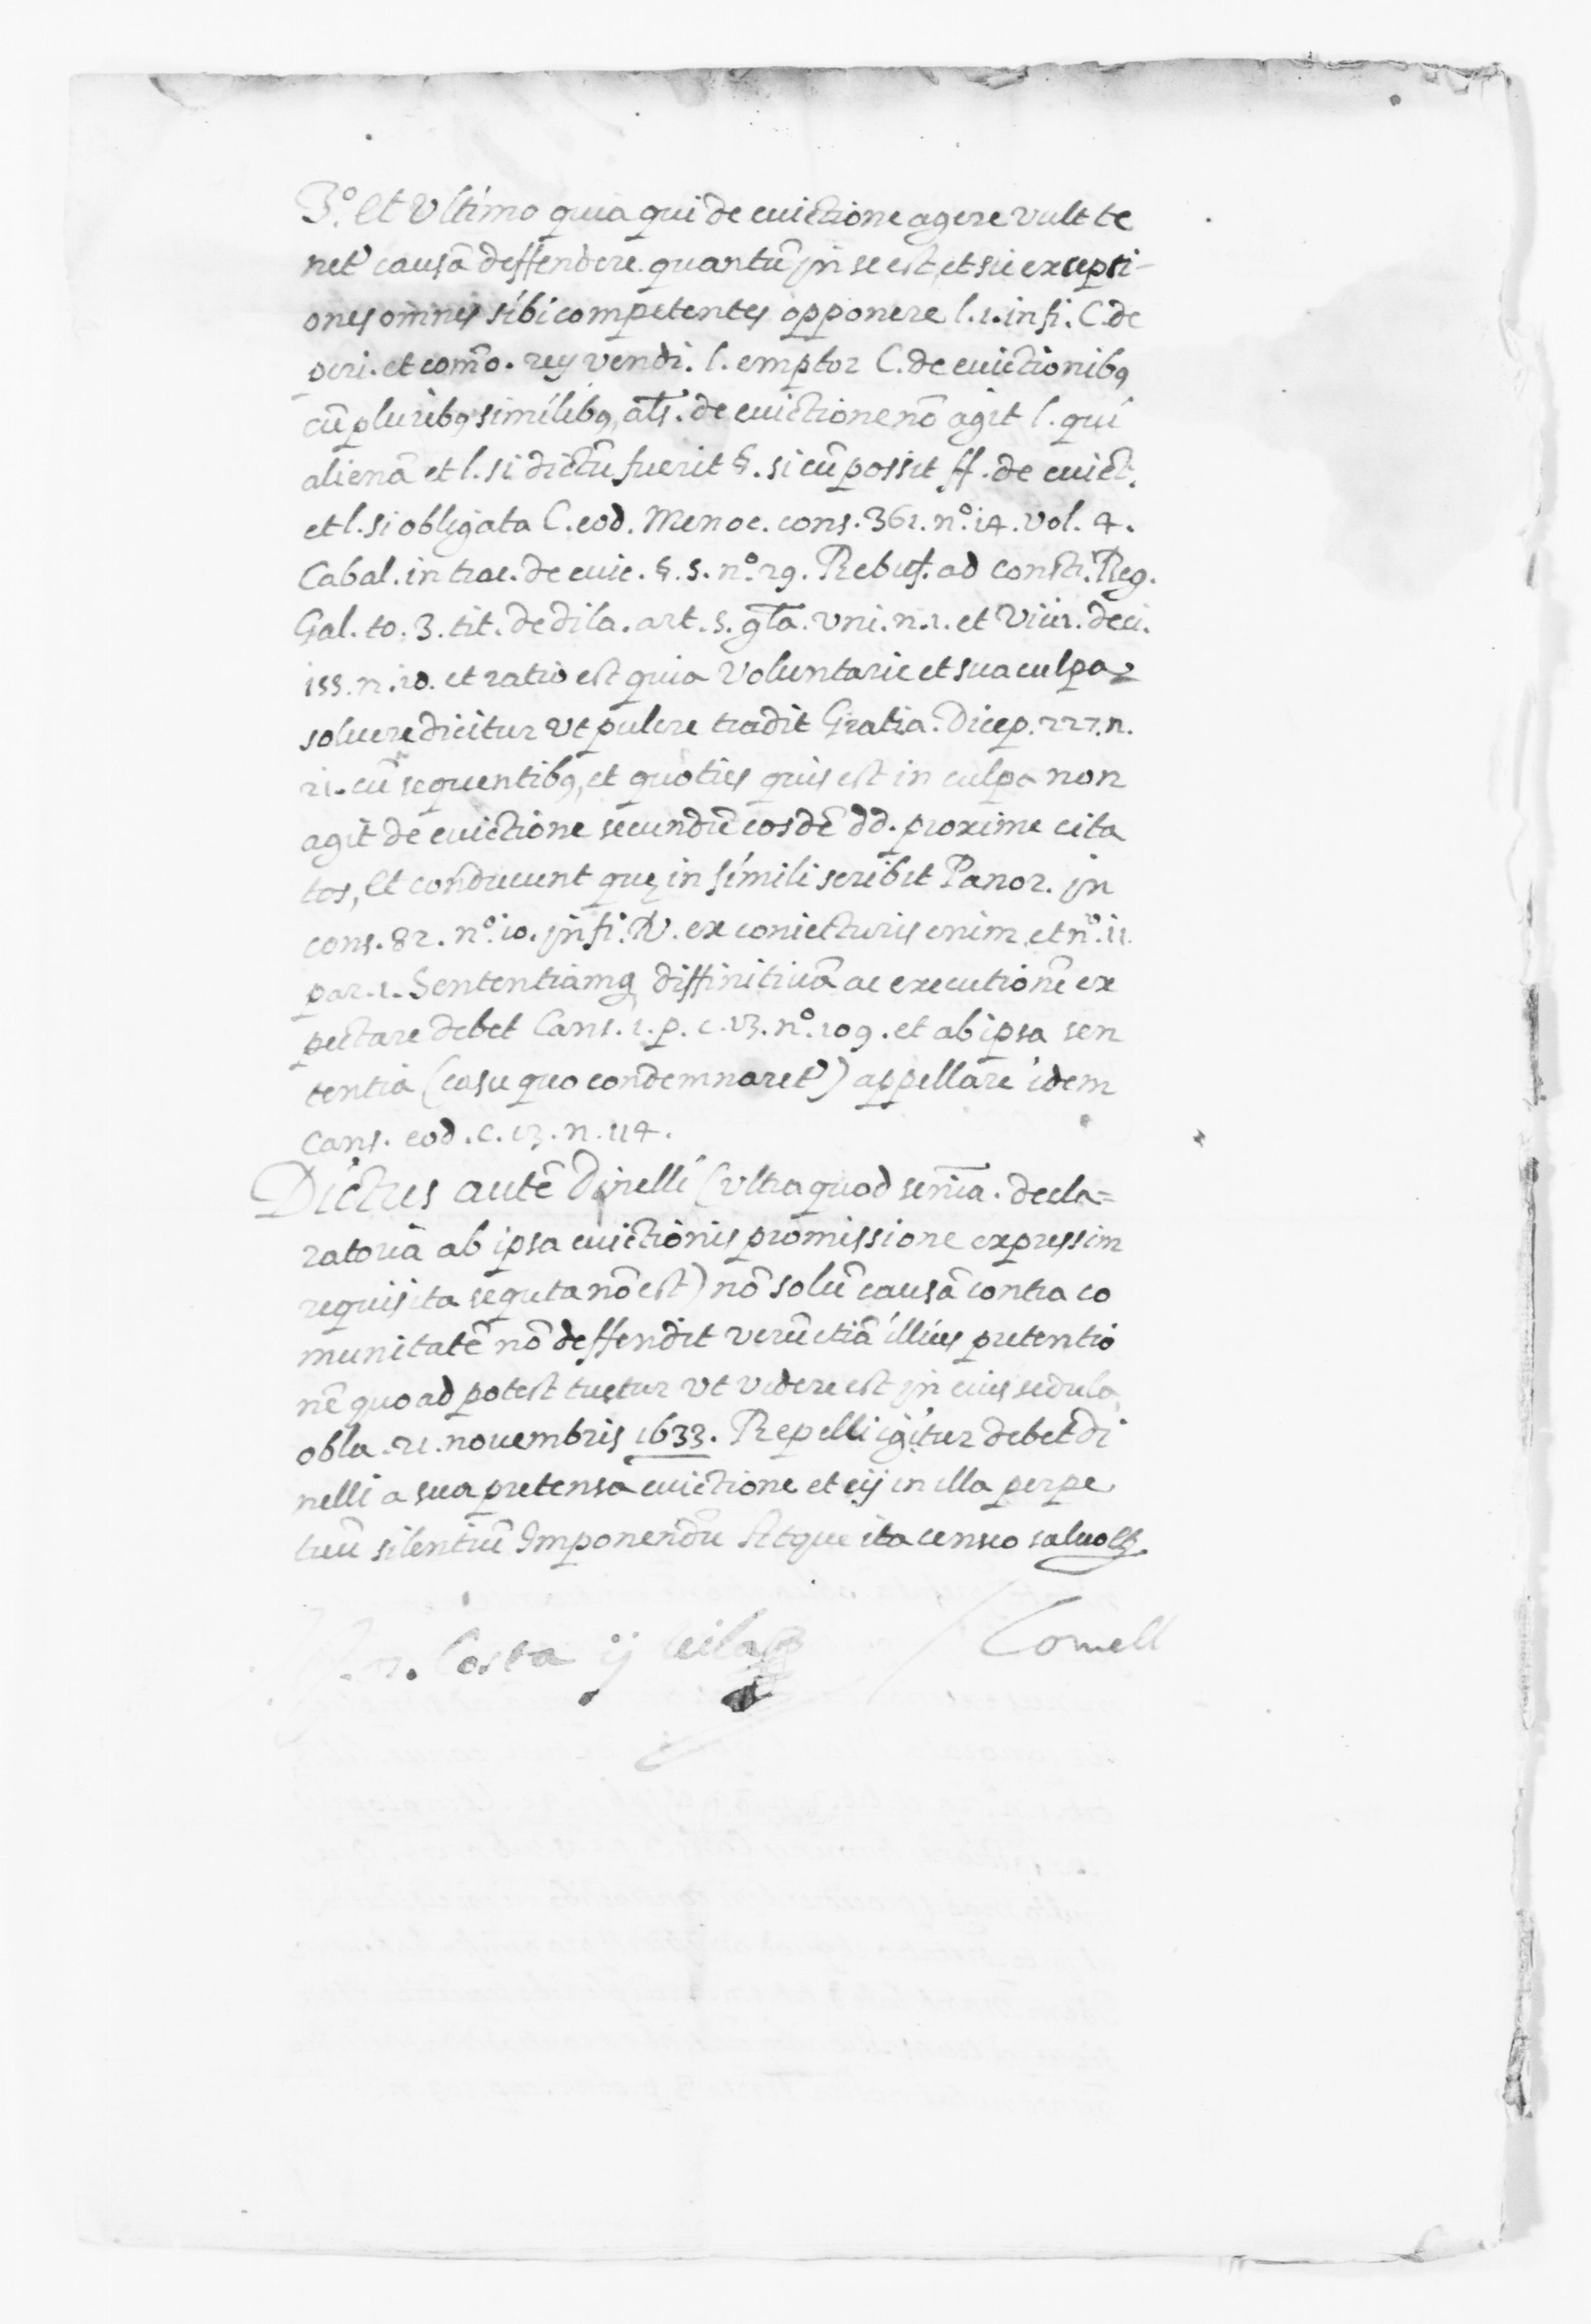 3.º et Ultimo quia qui de euictione agere vult te
net' causã deffendere quantũ jn se est, et sic excepti-
ones omnes sibi competentes opponere l. 1. in fi. C. de
peri. et com̃o. rej vendi. l. emptor C. de euictionibꝰ
cũ pluribꝰ similibꝰ, als̃. de euictione nõ agit l. qui
alienã et l. si dictũ fuerit §. si cũ possit ff. de euict.
et l. si obligata C. eod. Menoc. cons. 361. n.º 14. vol. 4.
Cabal. in trac. de euic. §. 5. n.º 29. Rebuf. ad consti. Reg.
Gal. to. 3. tit. de dila. art. 5. gl̃a. vni. n. 1. et Viui. deci.
155. n. 10. et ratio est quia voluntarie et sua culpa
soluere dicitur vt pulcre tradit Gratia. Dicep. 227. n.
21. cũ sequentibꝰ, et quoties quis est in culpa non
agit de euictione secundũ eosdẽ dd. proxime cita
tos, Et conducunt quę in simili scribit Panor. jn
cons. 82. n.º 10. jn fi. V. ex coniecturis enim, et n.º 11.
par. 1. Sententiamq̃ diffinitiuã ac executionẽ ex
pectare debet Cans. 1. p. c. 13. n.º 109. et ab ipsa sen
tentia (casu quo condemnaret') appellare idem
Cans. eod. c. 13. n. 114.
Dictus autẽ Dinelli (vltra quod senr̃ia. decla=
ratoria ab ipsa euictionis promissione expressim
requisita sequta nõ est) nõ solũ causã contra co
munitatẽ nõ deffendit verũ etiã illius pretentio
nẽ quoad potest tuetur vt videre est jn eius sedula
obla. 21. nouembris 1633. Repelli igitur debet di
nelli a sua pretensa euictione et eij in illa perpe
tuũ silentiũ Imponendũ Atque ita censeo saluo &.
Costa
Cornell